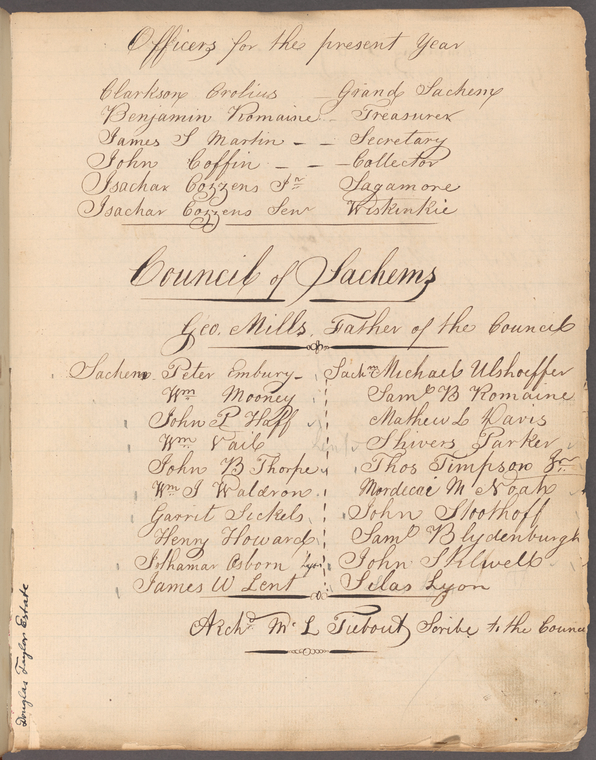 Officers for the present Year
Clarkson Crolius — Grand Sachem
Benjamin Romaine - Treasurer
James S Martin - - Secretary
John Coffin - - - Collector
Isachar Cozzens Jr Sagamore
Isachar Cozzens Senr Wiskinkie
Council of Sachems
Geo. Mills, Father of the Council
Sachem Peter Embury - Sachm Michael Ulshoeffer
Wm Mooney Saml B Romaine
John P Haff Mathew L Davis
Wm Vail Shivers Parker
John B Thorpe Thos Timpson Jnr
Wm J Waldron Mordicai M Noah
Garrit Sickels John Sloothoff
Henry Howard Saml Blydenburgh
Jothamar Osborn John Stilwell
James W Lent Silas Lyon
Archd Mc L Tiebout, Scribe to the Counci
Douglas Taylor Estate